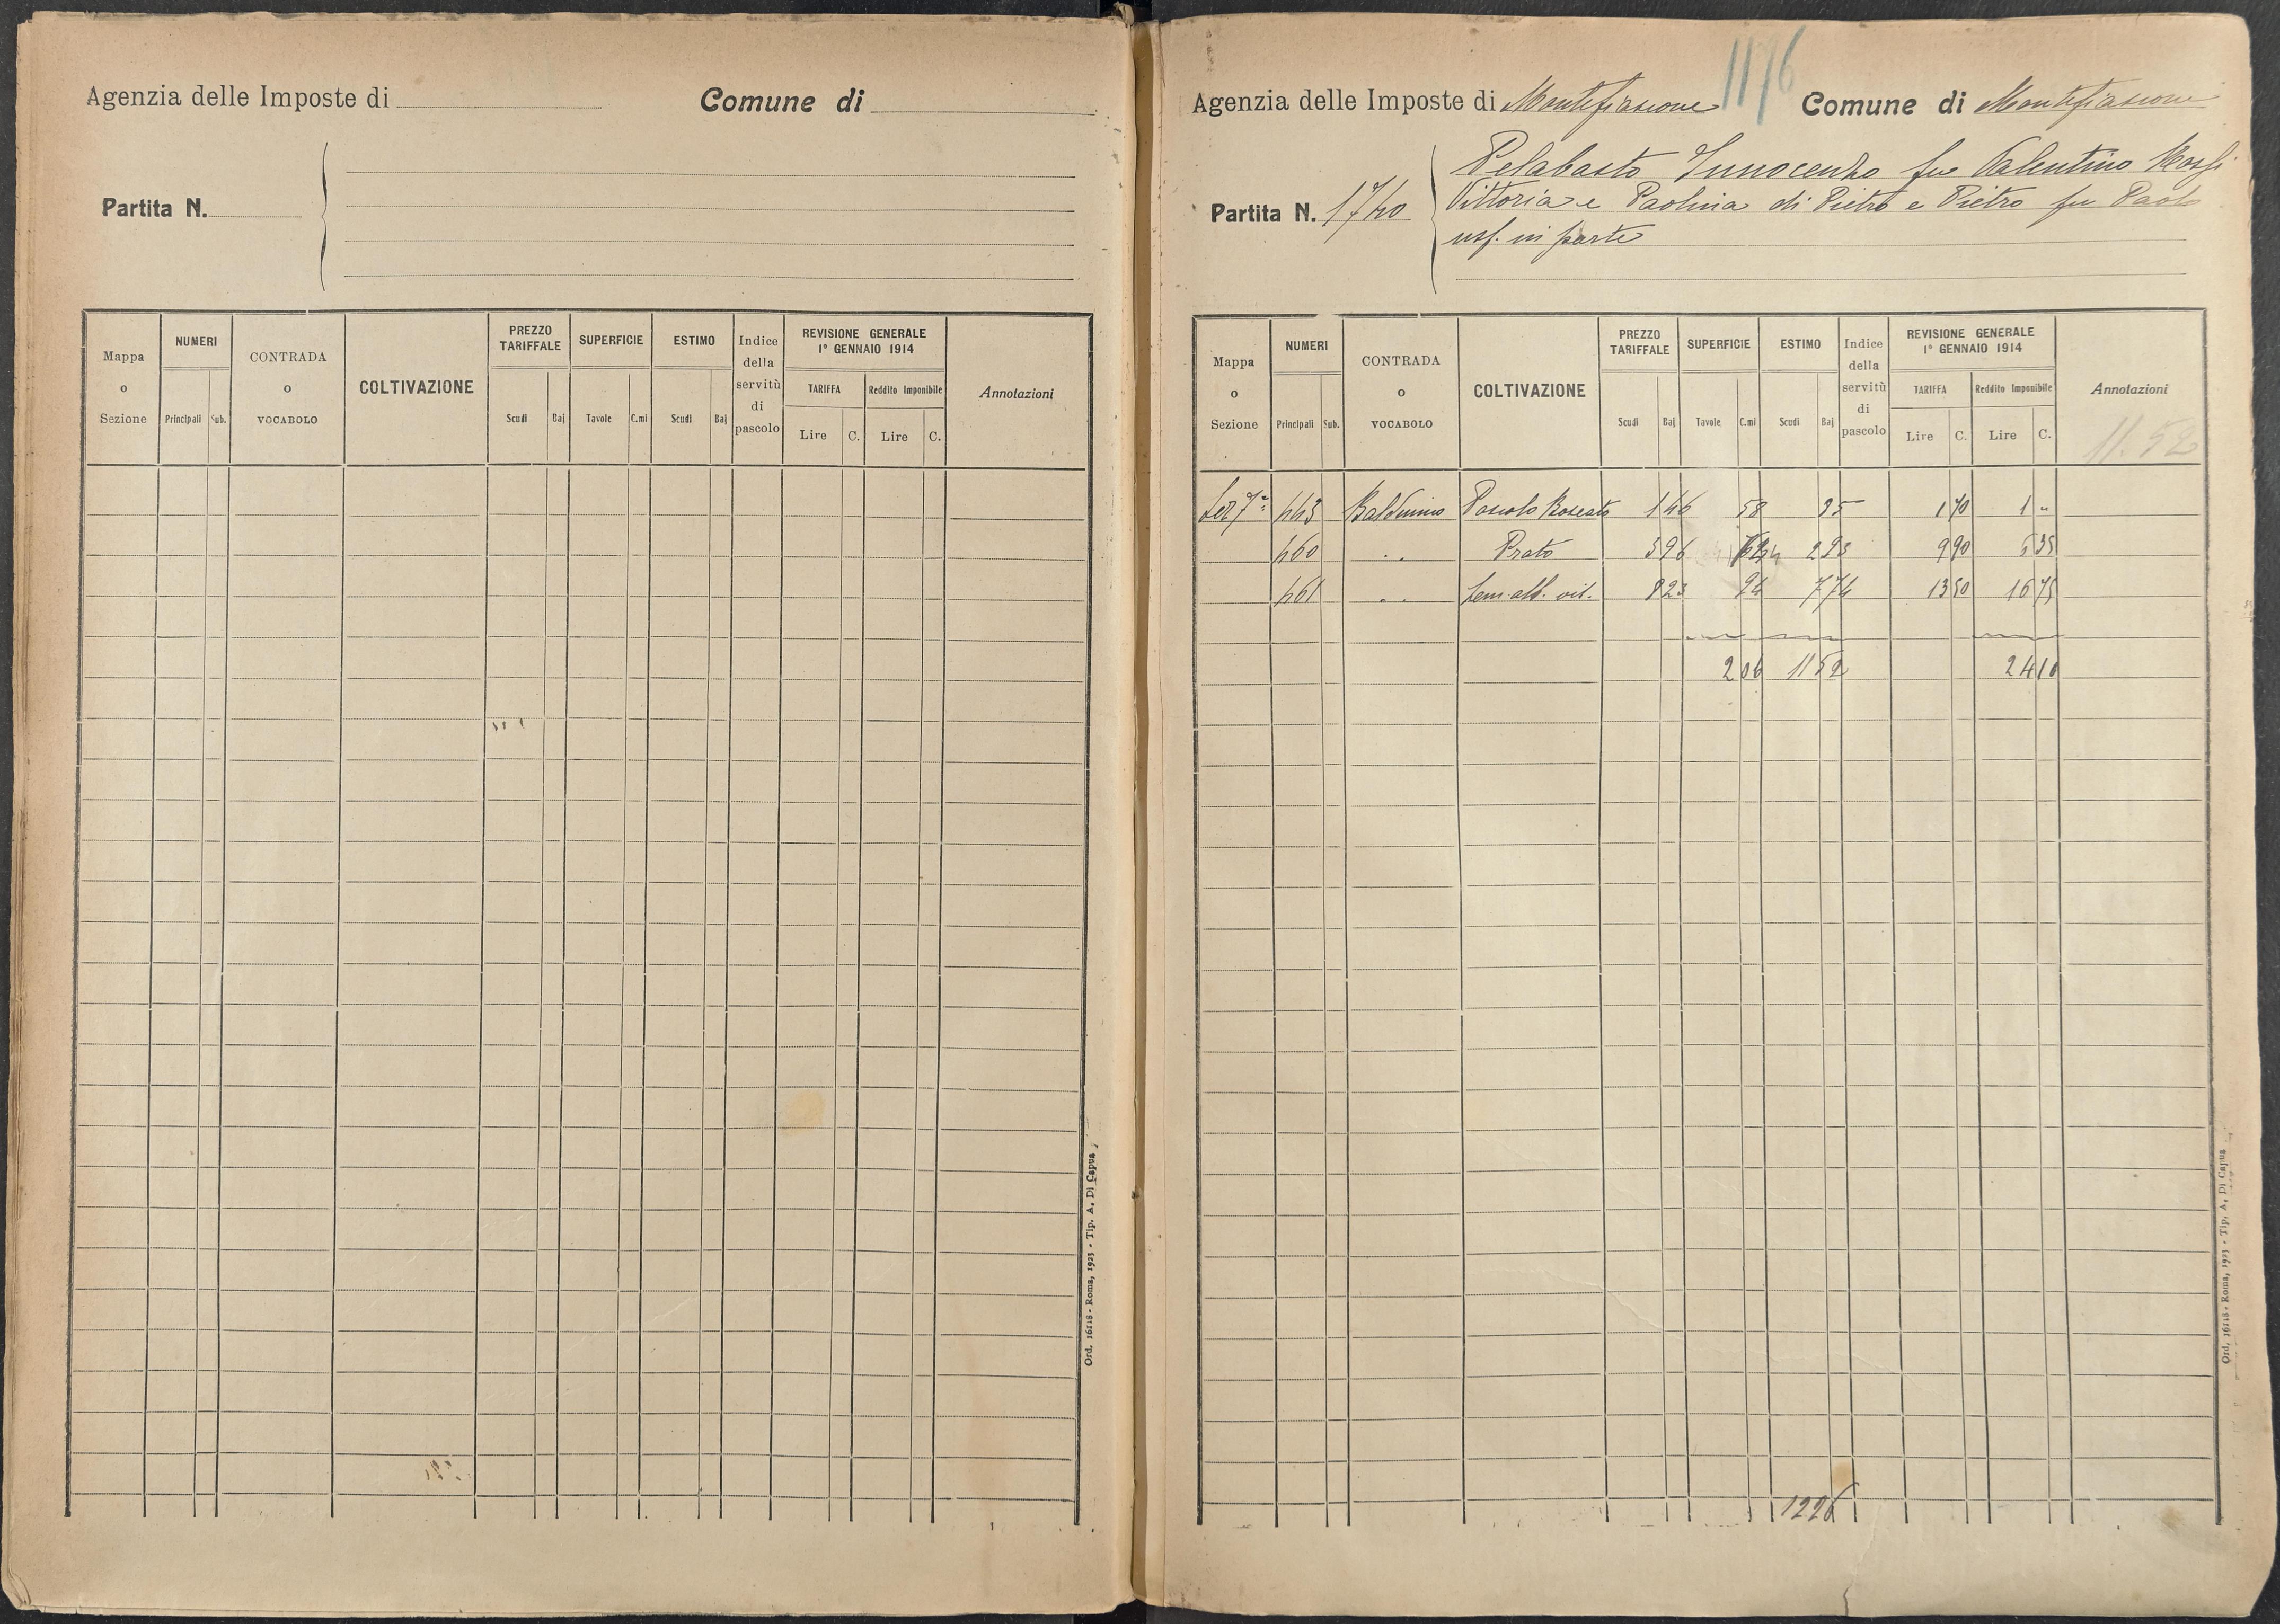 Agenzia delle Imposte di
Comune di
Partita N.
Mappa o Sezione
NUMERI
Principali Sub.
CONTRADA o VOCABOLO
COLTIVAZIONE
PREZZO TARIFFALE
Scudi Baj
SUPERFICIE
Tavole C.mi
ESTIMO
Scudi Baj
Indice della servitù di pascolo
REVISIONE GENERALE
1° GENNAIO 1914
TARIFFA Reddito Imponibile
Lire C. Lire C.
Annotazioni
Ord. 16118 - Roma, 1923 - Tip. A. Di Capua
1176
Agenzia delle Imposte di Montefiascone Comune di Montefiascone
Partita N. 1740
Pelabasto Innocenzo fu Valentino Rossi
Vittoria e Paolina di Pietro e Pietro fu Paolo
usf. in parte
Mappa o Sezione
NUMERI
Principali Sub.
CONTRADA o VOCABOLO
COLTIVAZIONE
PREZZO TARIFFALE
Scudi Baj
SUPERFICIE
Tavole C.mi
ESTIMO
Scudi Baj
Indice della servitù di pascolo
REVISIONE GENERALE
1° GENNAIO 1914
TARIFFA Reddito Imponibile
Lire C. Lire C.
Annotazioni
11.52
Sez 7ª 443 Baldinino Pascolo Boscato 146 58 85 1 70 1 "
460 " Prato 596 293 9 90 5 35
461 " Sem. alb. vit. 823 94 774 13 50 16 75
2 06 11 52 24 10
1226
Ord. 16118 - Roma, 1923 - Tip. A. Di Capua